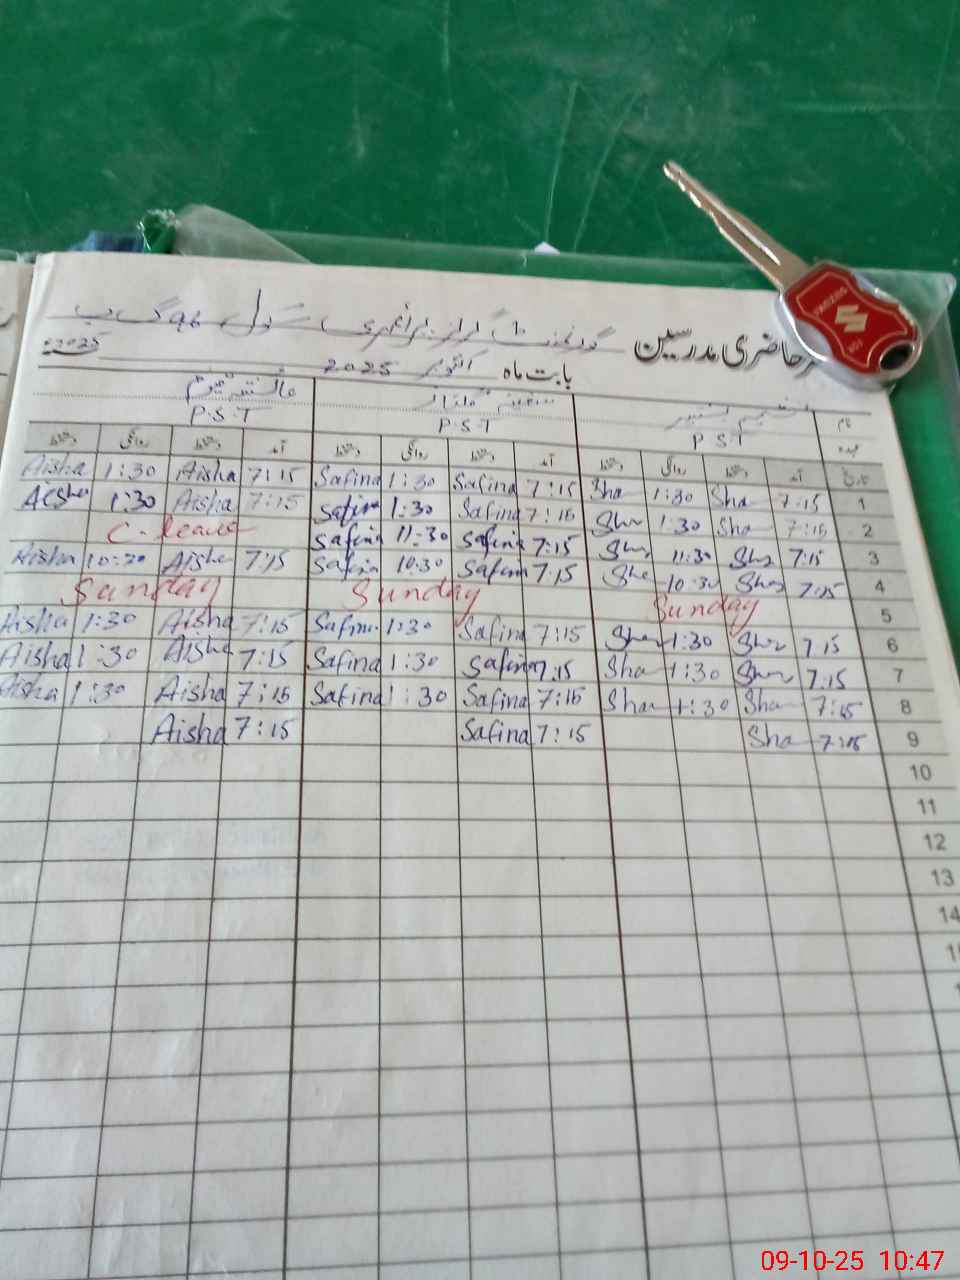 گورنمنٹ گرلز پرائمری سکول
حاضری مدرسین
بابت ماہ اکتوبر 2025
2025ء
نام
عہدہ P.S.T P.S.T P.S.T
تاریخ آمد دستخط روانگی دستخط آمد دستخط روانگی دستخط آمد دستخط روانگی دستخط
Aisha 1:30 Aisha 7:15 Safina 1:30 Safina 7:15 Sha 1:30 Sha 7:15 1
Aisha 1:30 Aisha 7:15 Safina 1:30 Safina 7:15 Sha 1:30 Sha 7:15 2
C-leave Safina 11:30 Safina 7:15 Sha 11:30 Sha 7:15 3
Aisha 10:30 Aisha 7:15 Safina 10:30 Safina 7:15 Sha 10:30 Sha 7:15 4
Sunday Sunday Sunday 5
Aisha 1:30 Aisha 7:15 Safina 1:30 Safina 7:15 Sha 1:30 Sha 7:15 6
Aisha 1:30 Aisha 7:15 Safina 1:30 Safina 7:15 Sha 1:30 Sha 7:15 7
Aisha 1:30 Aisha 7:15 Safina 1:30 Safina 7:15 Sha 1:30 Sha 7:15 8
Aisha 7:15 Safina 7:15 Sha 7:15 9
10
11
12
13
14
SUZUKI
09-10-25 10:47